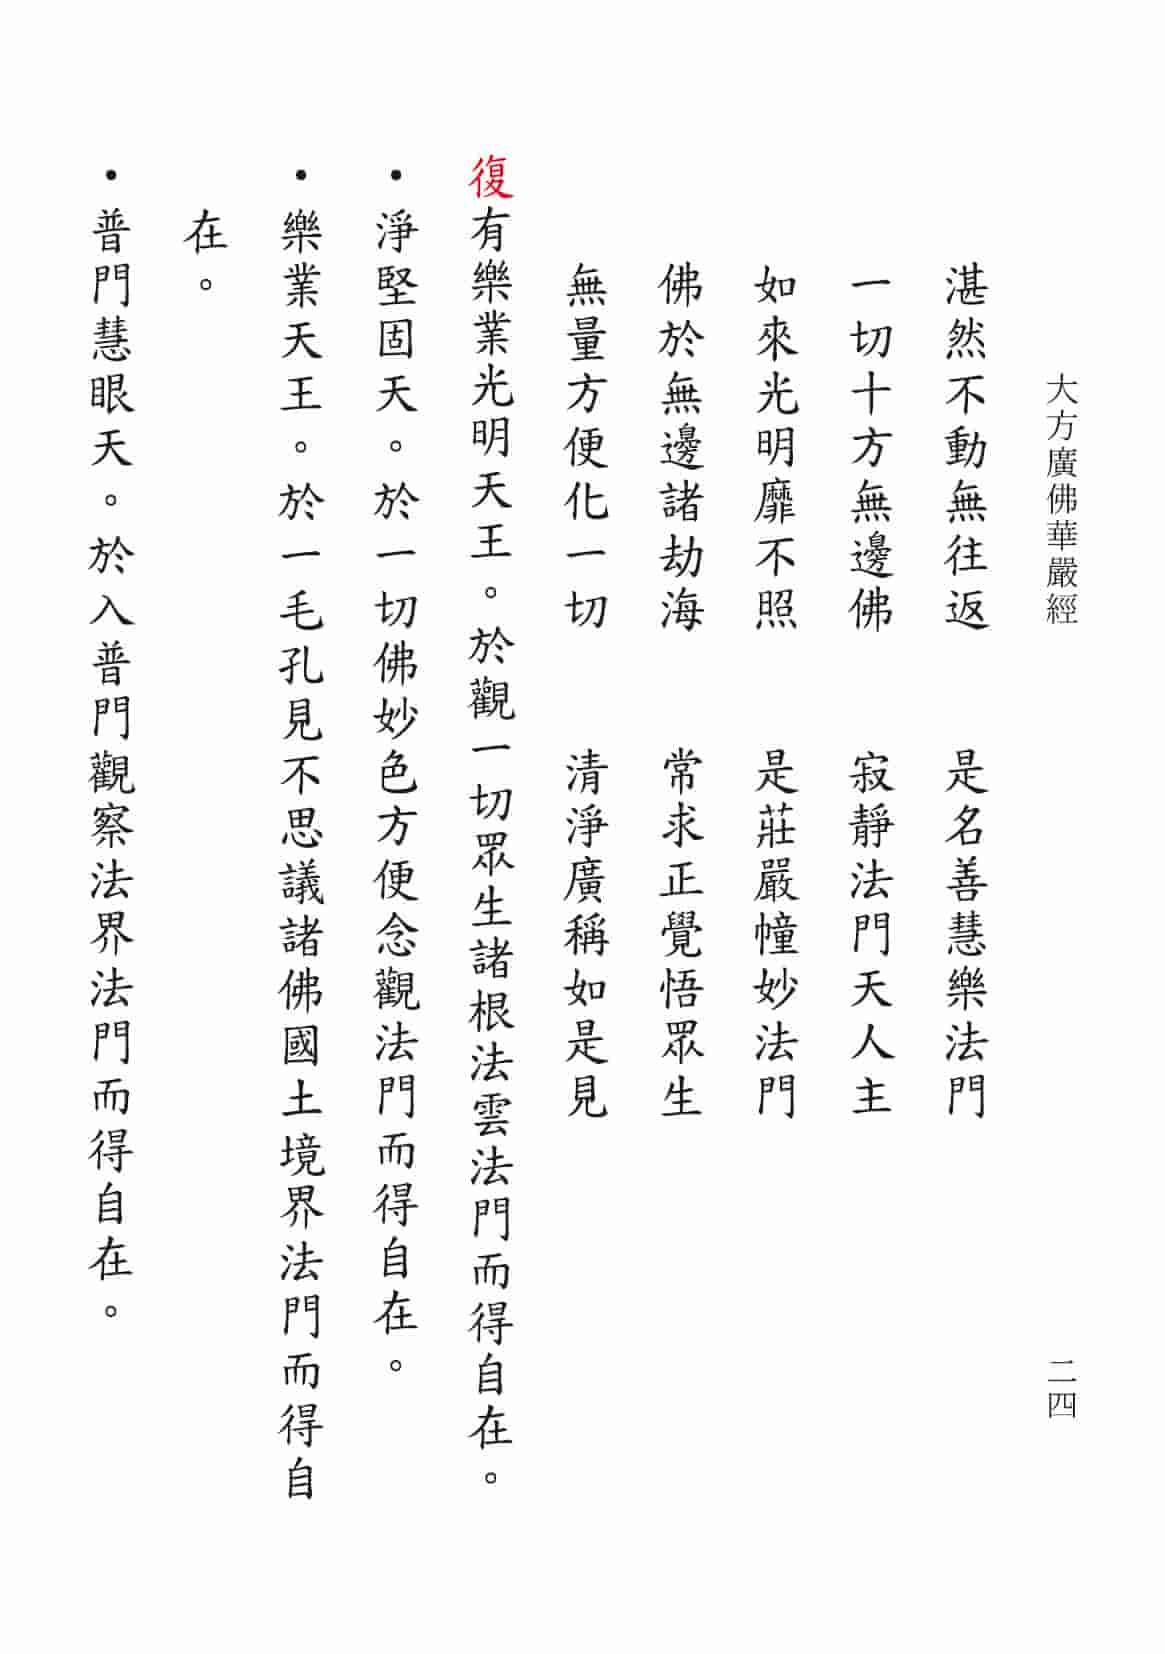 大方廣佛華嚴經
二四
湛然不動無往返　是名善慧樂法門
一切十方無邊佛　寂靜法門天人主
如來光明靡不照　是莊嚴幢妙法門
佛於無邊諸劫海　常求正覺悟眾生
無量方便化一切　清淨廣稱如是見
復有樂業光明天王。於觀一切眾生諸根法雲法門而得自在。
•淨堅固天。於一切佛妙色方便念觀法門而得自在。
•樂業天王。於一毛孔見不思議諸佛國土境界法門而得自
在。
•普門慧眼天。於入普門觀察法界法門而得自在。